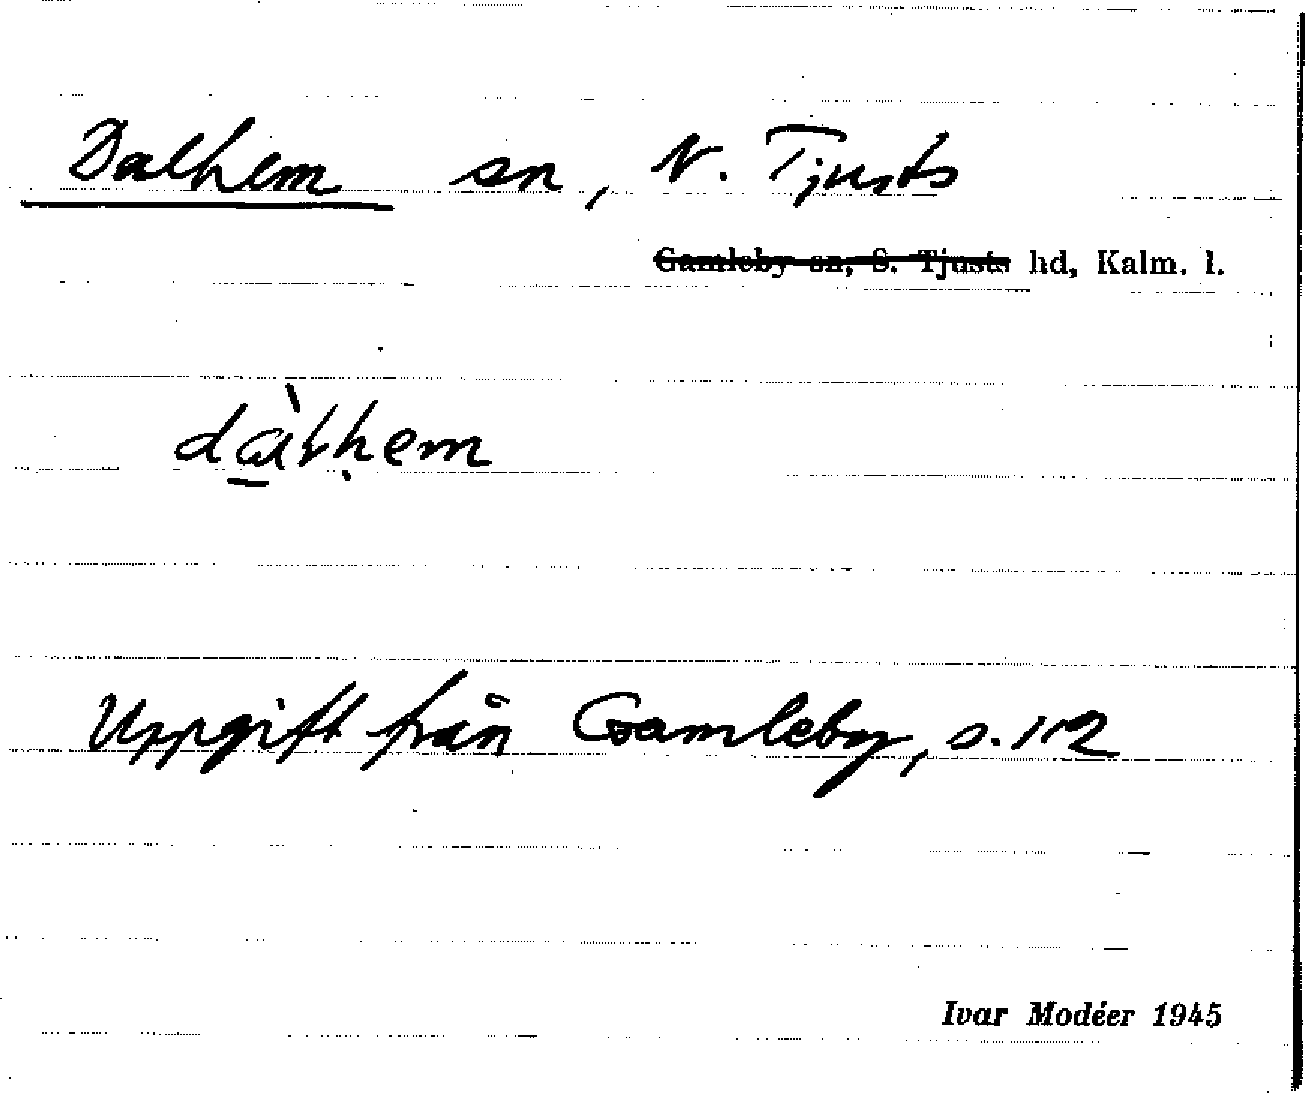 Dalhem sn, N. Tjusts
Gamleby sn, S. Tjusts hd, Kalm. l.
Uppgift från Gamleby, s. 112
Ivar Modéer 1945